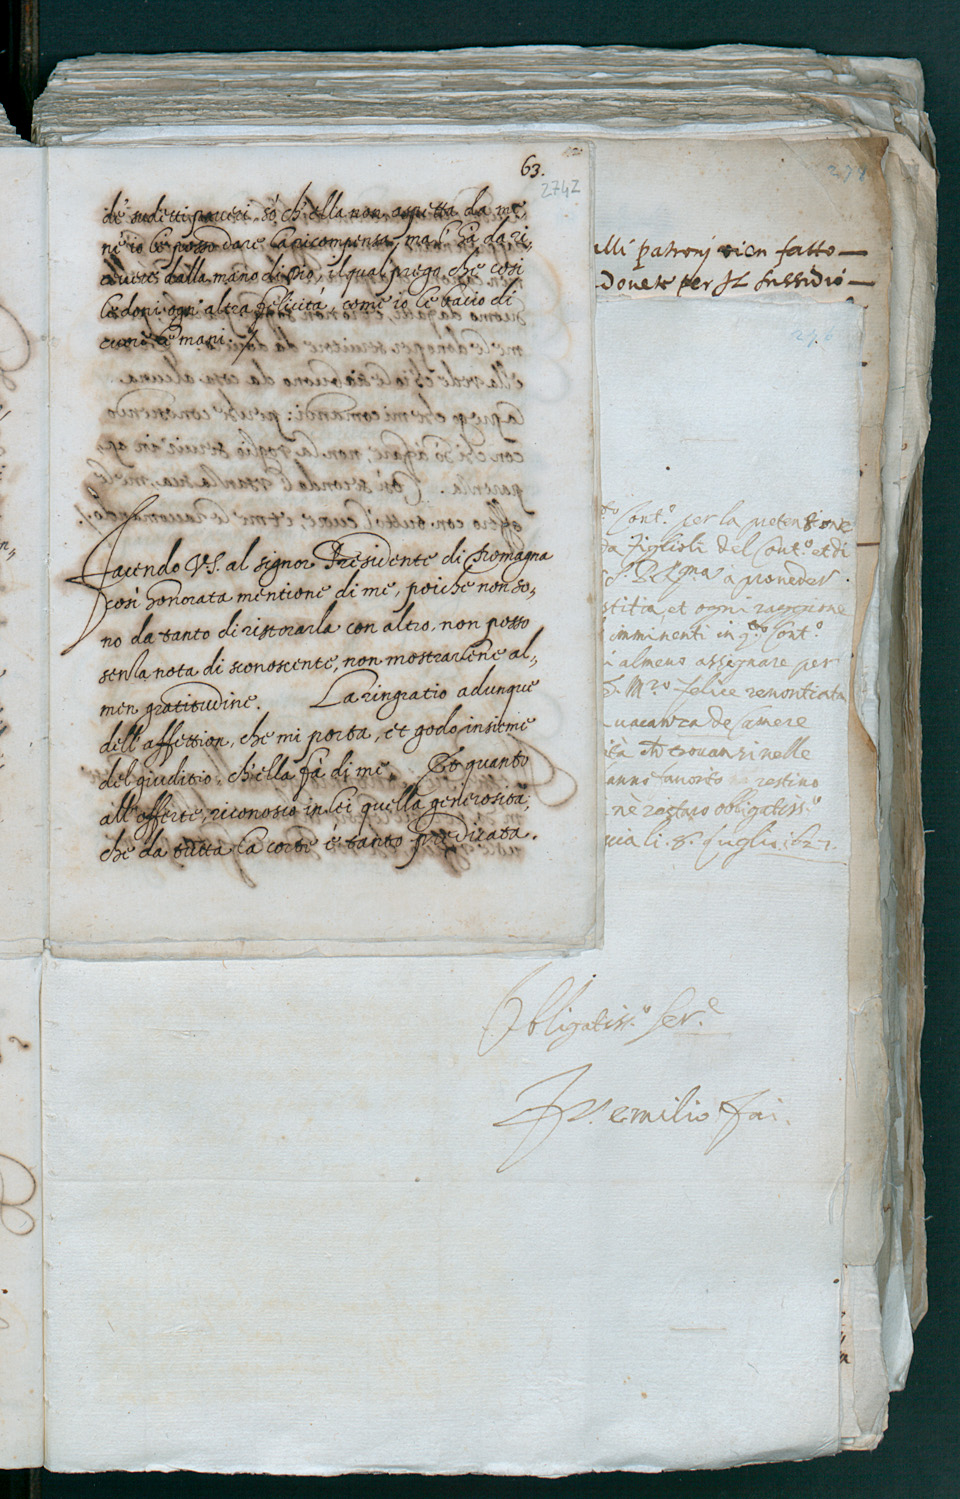 63.
2742
de' sudetti poveri. só ch'ella non aspetta da me,
né io le posso dare la ricompensa, ma l'há da ri,
cevere dalla mano di Dio, il qual prego che cosi
le doni ogn'altra felicitá, come io le bacio di
cuore le mani.
Facendo V.S. al signor Presidente di Romagna
così honorata mentione di me, poiche non so,
no da tanto di ristorarla con altro, non posso
senza nota di sconoscente, non mostrarlene al,
men gratitudine. La ringratio adunque
dell'affettion, che mi porta, et godo insieme
del giuditio. ch'ella fà di me. Et quanto
all'offerte, riconosco in lei quella generosità,
che da tutta la corte é tanto predicata.
278
alli patronj vien fatto
Dovete per il sussidio
276
Cont.º per la pretensione
figlioli del Cont.º et di
à proveder
stitia, et ogni raggione
imminenti in q.to Cont.º
almeno assignare per
M.ro felice
vacanza de
trovanzi nelle
anno favorito restino
ne restaro obligatiss.º
li. 8. luglio. 162
Obligatiss.º Ser.e
emilio